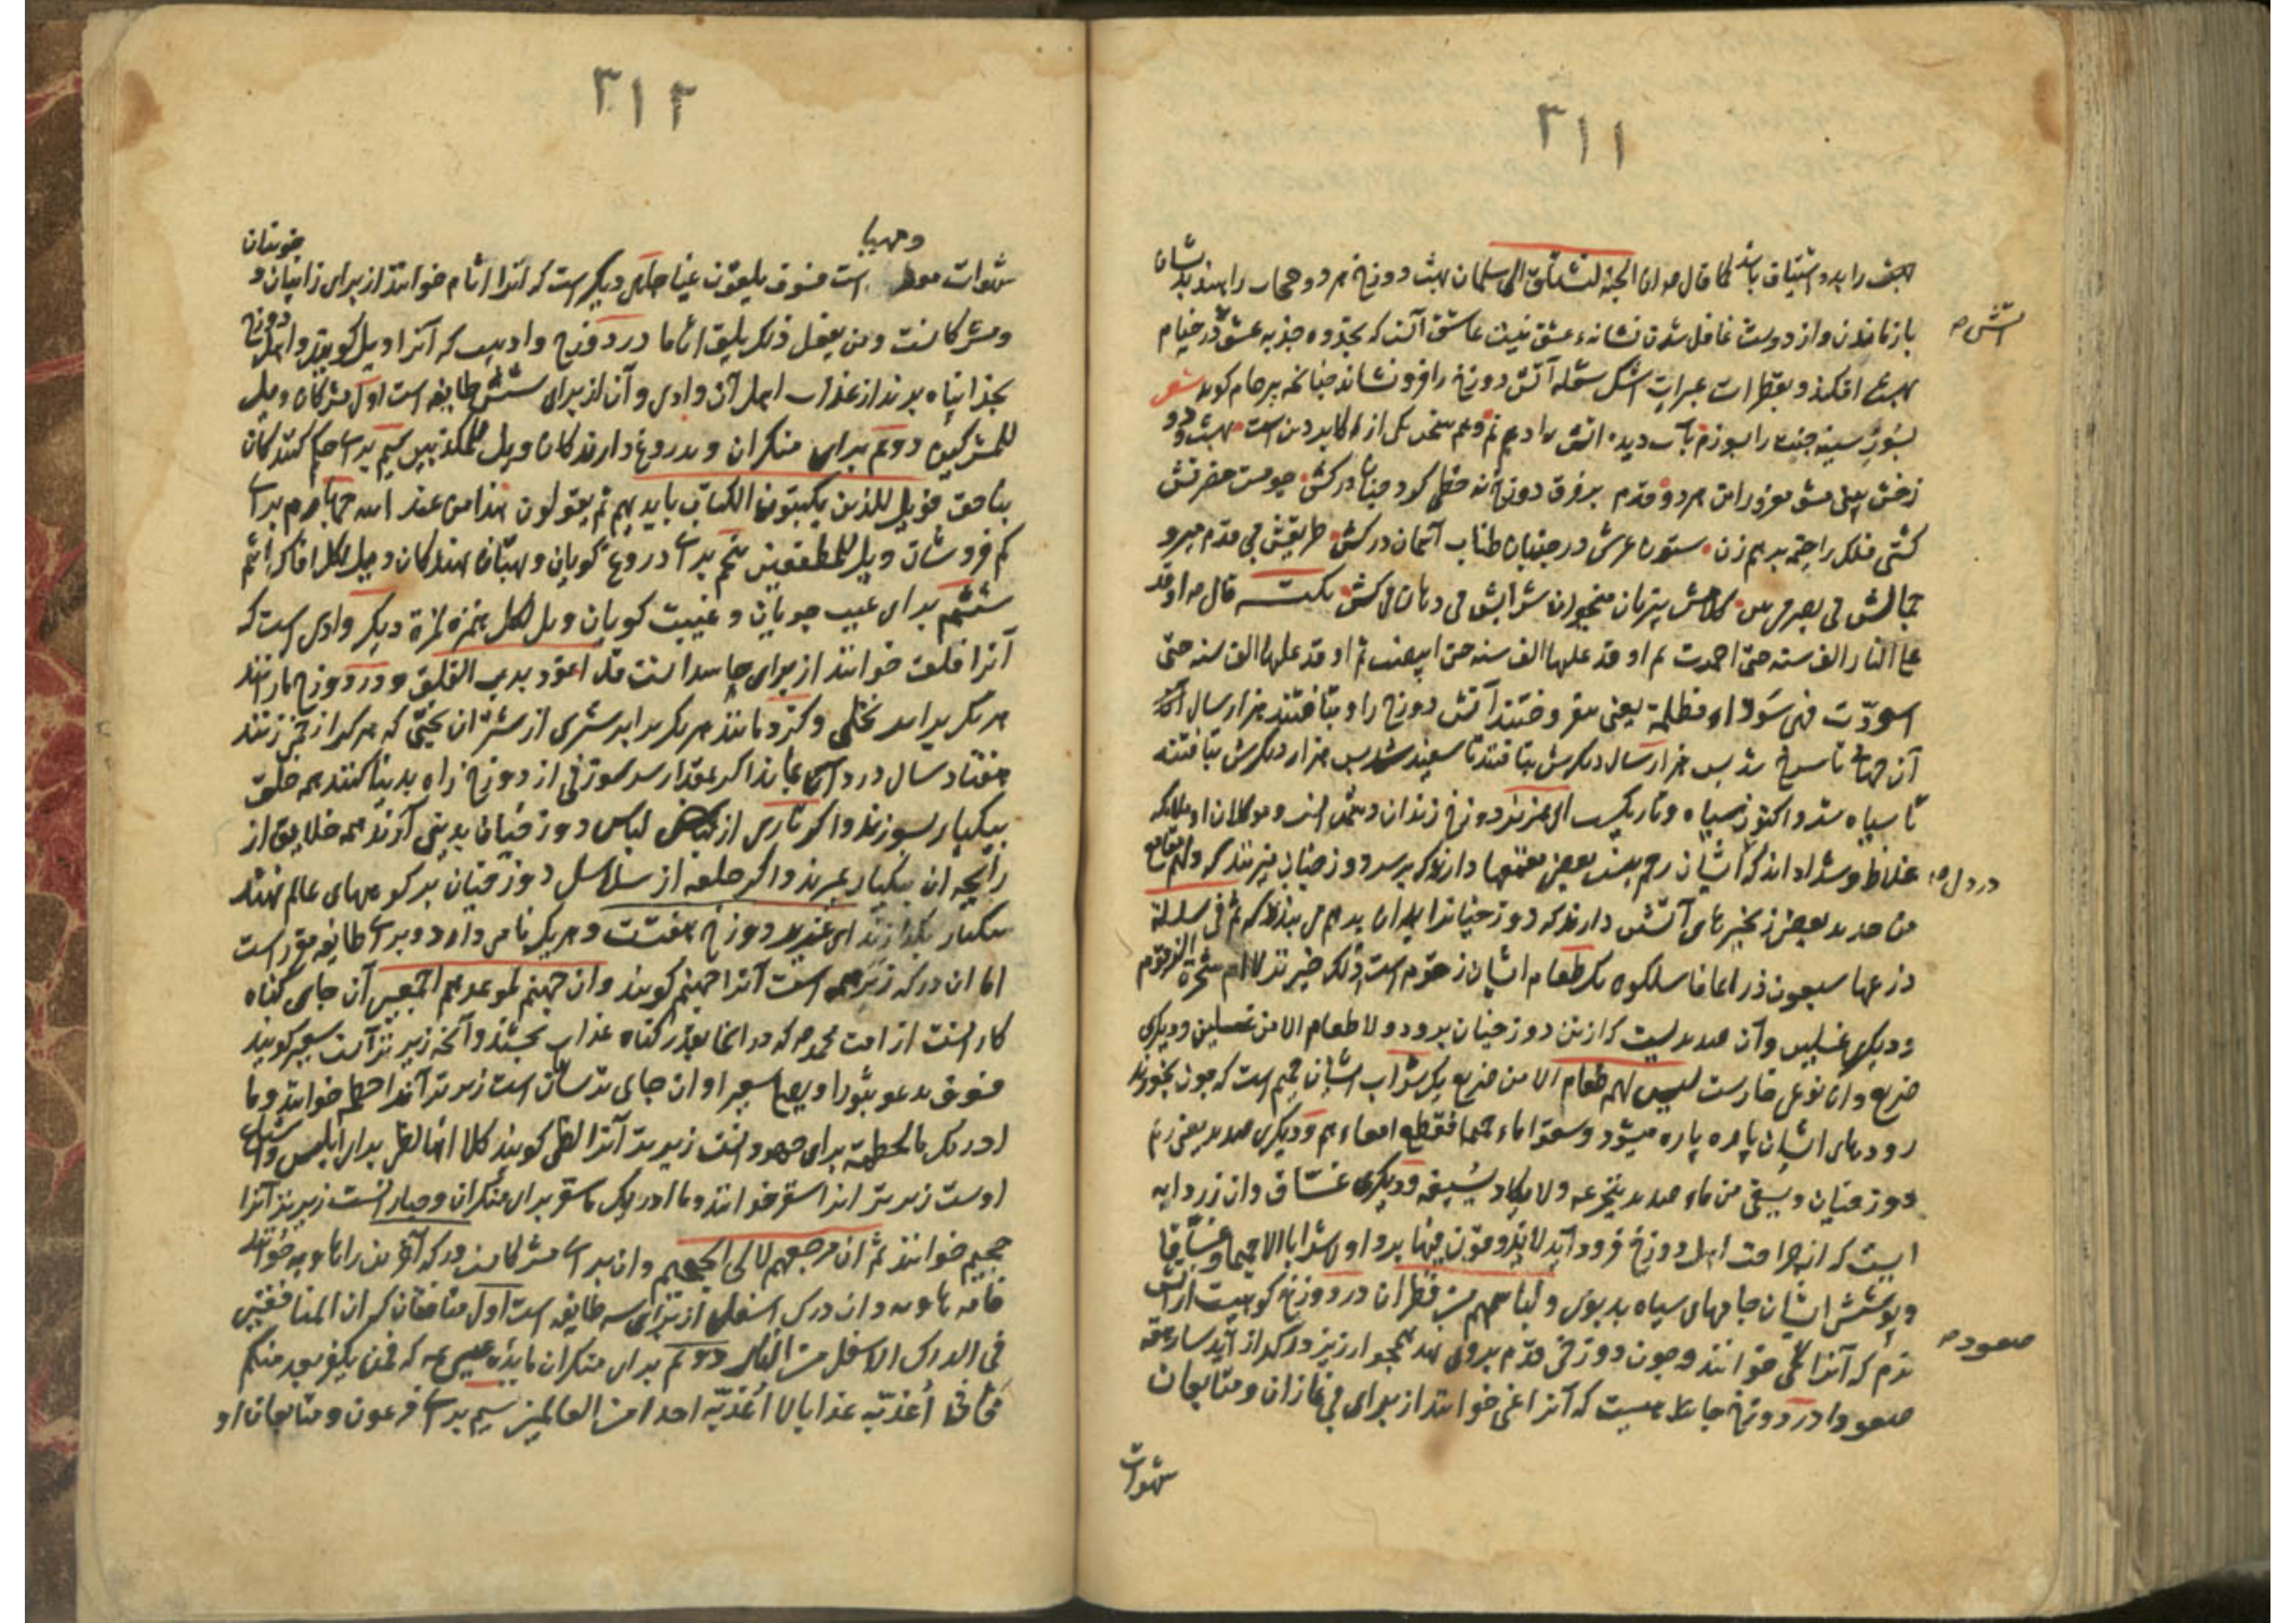 ۳۱۱
بهشت را بدو اشتیاق باشد کما قال ص ان الجنة لتشتاق الی سلمان بهشت دوزخ هر دو حجاب راهند بدیشان
باز ماندن و از دوست غافل شدن نشانه عشق نیست عاشق آنست که جذبه عشق در خیام
آتش ص
بهشت افکند و بقطرات عبرات اشک شعله آتش دوزخ را فرو نشاند چنانچه پیر جام کوید شعر
بسوز سینه جنت را بسوزم بآب دیده آتش را دهم نم و هم سخن یکی از اکابر دین است بهشت و دوزخش بینی مشو مغرور این هر دو قدم بر فرق دوزخ نه
کشتی فلک را جمله بر هم زن ستون عرش در جنبان طناب آسمان درکش طریقش بی قدم میرو
جمالش بی بصر می بین کلامش بی زبان میخوان شرابش بی دهان می کش نکته قال ص اوقد
علی النار الف سنه حتی احمرت ثم اوقد علیها الف سنه حتی ابیضت ثم اوقد علیها الف سنه حتی
اسودّت فهی سوداء مظلمة یعنی بیفروختند آتش دوزخ را و بتافتند هزار سال
تا سرخ شد پس هزار سال دیکرش بتافتند تا سفید شد پس هزار دیکرش بتافتند
تا سیاه شد و اکنون سیاه و تاریکست ای عزیز دوزخ زندان دشمنان است و موکلان او ملائکه
غلاظ و شداد اند که ایشان رحم نیست بعضی مقمعها دارند که بر سر دوزخیان میزنند که و لهم مقامع
در دل ص
من حدید بعضی زنجیرهای آتشین دارند که دوزخیانرا بدان بر هم می بندند که ثم فی سلسلة
ذرعها سبعون ذراعا فاسلکوه یک طعام ایشان زقوم است اذلک خیر نزلا ام شجرة الزقوم
و دیکر غسلین و آن صدیدیست که از تن دوزخیان برود و لا طعام الا من غسلین و دیکری
ضریع و آن نوعی خارست لیس لهم طعام الا من ضریع یک شراب ایشان حمیم است که چون بخورند
رودهای ایشان پاره پاره میشود و سقوا ماء حمیما فقطع امعاءهم و دیکری صدید یعنی ریم
دوزخیان و یسقی من ماء صدید یتجرعه و لا یکاد یسیغه و دیکری غسّاق و آن زردابه
ایست که از جراحت اهل دوزخ فرود آید لا یذوقون فیها بردا و لا شرابا الا حمیما و غسّاقا
و پوشش ایشان جامهای سیاه بدبوی و لباسهم من قطران در دوزخ کوهیست از آتش
نرم که آنرا خوانند و چون دوزخی قدم بروی نهد همچو ارزیز در کداز آید سارهقه
صعود ص
صعودا در دوزخ چاهیست که آنرا غی خوانند از برای بی نمازان و متابعان
شهوات
۳۱۲
و مهیا
شهوات است فسوف یلقون غیا جای دیکر است که آنرا اثام خوانند از برای زانیان و خونیان
و مشرکانست و من یفعل ذلک یلق اثاما در دوزخ وادیست که آنرا ویل کویند و اهل دوزخ
بخدا پناه برند از عذاب اهل آن وادی و آن از برای شش طایفه است اول مشرکان و ویل
للمشرکین دوم برای منکران و بدروغ دارندکان ویل للمکذبین سیم برای حکم کنندکان
بناحق فویل للذین یکتبون الکتاب بایدیهم ثم یقولون هذا من عند الله چهارم برای
کم فروشان ویل للمطففین پنجم برای دروغ کویان و بهتان نهندکان ویل لکل افاک اثیم
ششم برای عیب جویان و غیبت کویان ویل لکل همزة لمزة دیکر وادی است که
آنرا فلق خوانند از برای حاسدانست قل اعوذ برب الفلق و در دوزخ مارانند
هر یک برابر نخلی و کژدمانند هر یک برابر شتری از شتران بختی که هر کرا زخم زنند
هفتاد سال در درد آن بماند اکر بمقدار سر سوزنی از دوزخ راه بدنیا کنند همه خلق
بیکبار بسوزند و اکر تاری از لباس دوزخیان بدنیا آرند همه خلایق از
رایحه آن بیکبار بمیرند و اکر حلقه از سلاسل دوزخیان بر کوههای عالم نهند
بیکبار بکدازند ای عزیز دوزخ هفتست و هر یک نامی دارد و برای طایفه مقرر است
اما آن درکه زبر همه است آنرا جهنم کویند و ان جهنم لموعدهم اجمعین آن جای کناه
کارانست از امت محمد ص که در آنجا بقدر کناه عذاب بچشند و آنچه زیر تر آنست سعیر کویند
فسوف یدعو ثبورا و یصلی سعیرا و آن جای ترسایان است زیر تر آنرا حطمه خوانند و ما
ادریک ما الحطمة برای جهودانست زیر تر آنرا لظی کویند کلا انها لظی برای ابلیس و اتباع
اوست زیر تر آنرا سقر خوانند و ما ادریک ما سقر برای منکران و جبارانست زیر تر آنرا
جحیم خوانند ثم ان مرجعهم لالی الجحیم و آن برای مشرکانست درکه آخرین را هاویه خوانند
فامه هاویه و آن درک اسفل از برای سه طایفه است اول منافقان که ان المنافقین
فی الدرک الاسفل من النار دوم برای منکران مائده عیسی ع که فمن یکفر بعد منکم
فانی اعذبه عذابا لا اعذبه احدا من العالمین سیم برای فرعون و متابعان او